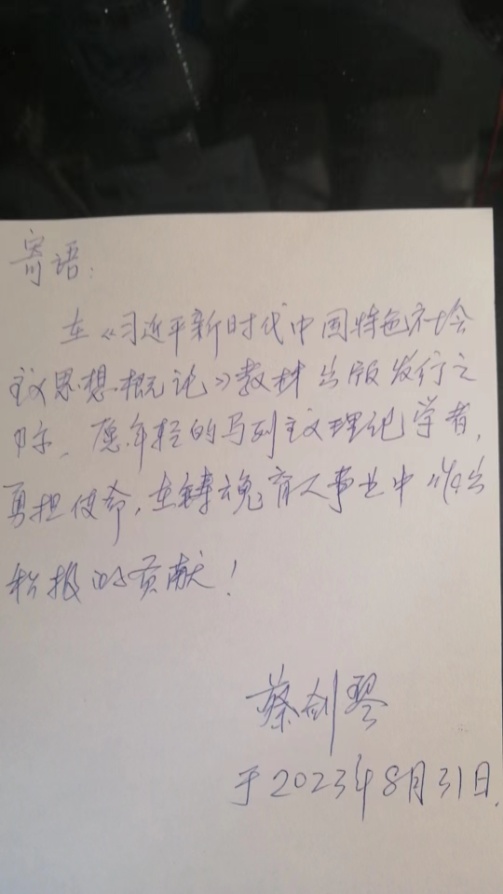 寄语：
在《习近平新时代中国特色社会
主义思想概论》教材出版发行之
际，愿年轻的马列主义理论学者，
勇担使命，在铸魂育人事业中作出
积极的贡献！
蔡剑琴
于2023年8月31日.